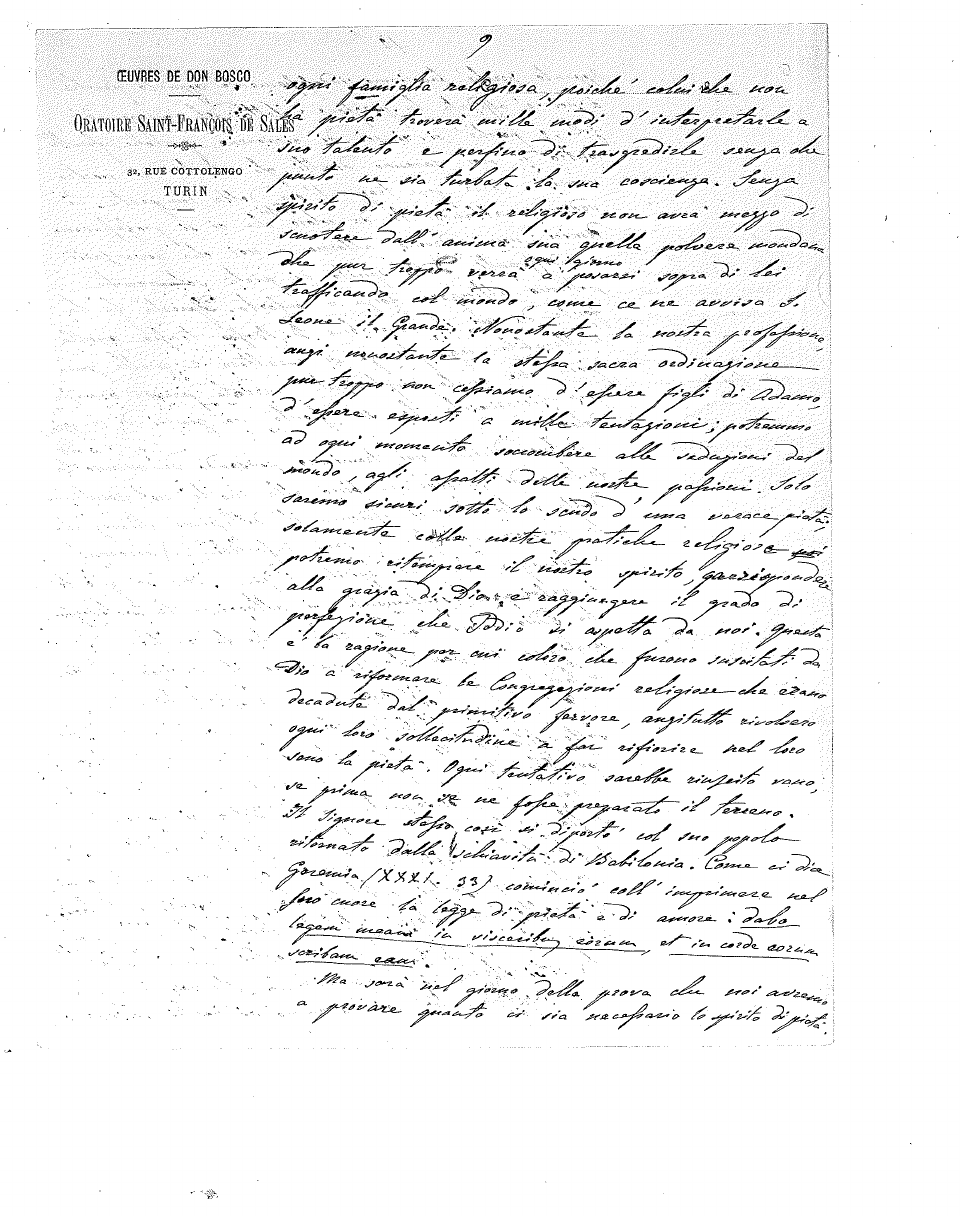 9
ŒUVRES DE DON BOSCO
ORATOIRE SAINT-FRANÇOIS DE SALES
32, RUE COTTOLENGO
TURIN
ogni famiglia religiosa, poiché colui che non
ha pietà troverà mille modi d'interpretarle a
suo talento e perfino di trasgredirle senza che
punto ne sia turbata la sua coscienza. Senza
spirito di pietà il religioso non avrà mezzo di
scuotere dall'anima sua quella polvere mondana
ogni giorno
che pur troppo verrà a posarsi sopra di lei
trafficando col mondo, come ce ne avvisa S.
Leone il Grande. Nonostante la nostra professione,
anzi nonostante la stessa sacra ordinazione
pur troppo non cessiamo d'essere figli di Adamo,
d'essere esposti a mille tentazioni; potremmo
ad ogni momento soccombere alle seduzioni del
mondo, agli assalti delle nostre passioni. Solo
saremo sicuri sotto lo scudo d'una verace pietà,
solamente colle nostre pratiche religiose noi
potremo ritemprare il nostro spirito, corrispondere
alla grazia di Dio e raggiungere il grado di
perfezione che Iddio si aspetta da noi. Questa
è la ragione per cui coloro che furono suscitati da
Dio a riformare le Congregazioni religiose che erano
decadute dal primitivo fervore, anzitutto rivolsero
ogni loro sollecitudine a far rifiorire nel loro
seno la pietà. Ogni tentativo sarebbe riuscito vano,
se prima non se ne fosse preparato il terreno.
Il Signore stesso così si diportò col suo popolo
ritornato dalla schiavitù di Babilonia. Come ci dice
Geremia (XXXI. 33) cominciò coll'imprimere nel
loro cuore la legge di pietà e di amore: dabo
legem meam in visceribus eorum, et in corde eorum
scribam eam.
Ma sarà nel giorno della prova che noi avremo
a provare quanto ci sia necessario lo spirito di pietà.